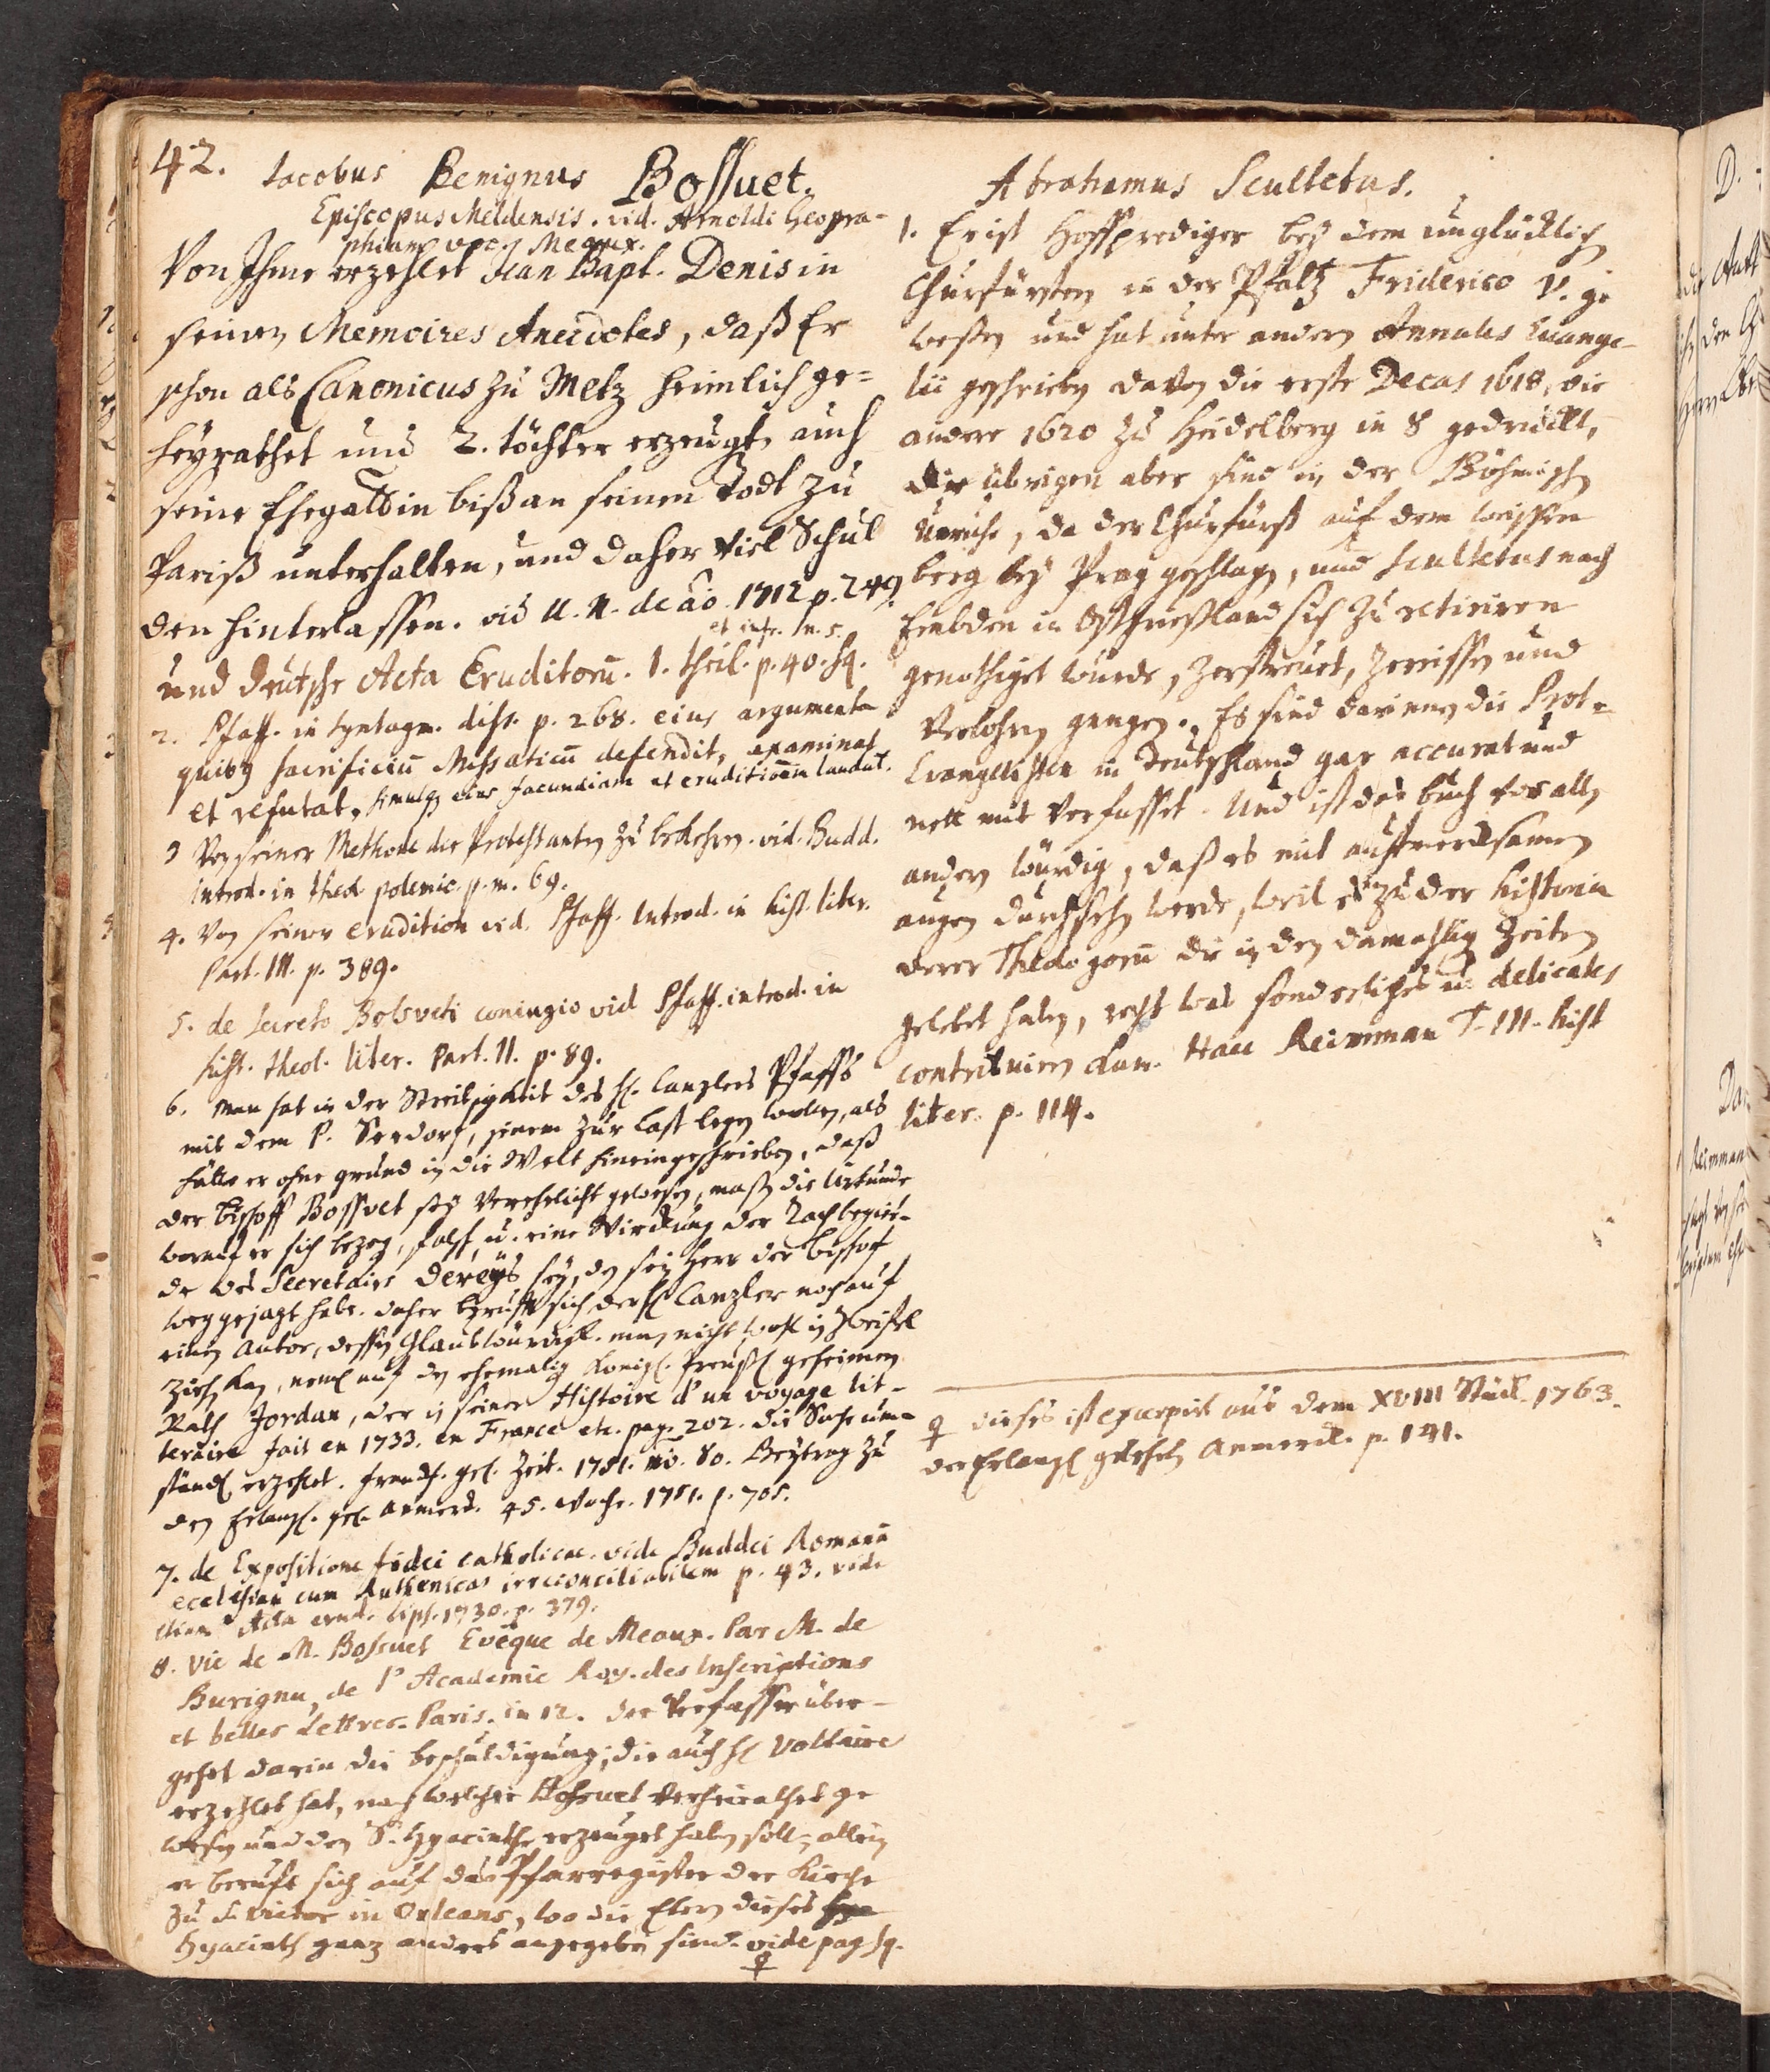 42. Iacobus Benignus Bossuet.
Episcopus Meldensis. vid. Arnoldi Geogra-
phiam voc. Meaux.
Von Ihme erzehlet Jean Bapt. Denis in
seinen Memoires Anecdotes, daß Er
schon als Canonicus zu Metz heimlich ge=
heyrathet und 2. töchter erzeugt, auch
seine Ehegattin biß an seinen Todt zu
Pariß unterhalten, und daher viel Schul
den hinterlassen. vid U. N. de ao. 1712 p. 249
et infr. n. 5.
und deutsche Acta Eruditorū. 1. theil. p. 40. sq.
2. Pfaff. in syntagm. diss. p. 268. eius argumenta
quibq sacrificiū Missaticū defendit, examinat
et refutat, simulq eius facundiam et eruditionem laudat.
3 Von seiner Methode die Protestanten zu bekehren. vid. Budd.
introd. in theol. polemic. p. m. 69.
4. Von seiner erudition vid. Pfaff. Introd. in hist. liter.
Part. III. p. 389.
5. de secreto Bossueti coniugio vid Pfaff. introd. in
hist. theol. liter. Part. II. p. 89.
6. Man hat in der Streitigkeit des H. Canzlers Pfaffs
mit dem P. Seedorf, jenem zur Last legen wollen, als
hätte er ohne grund in die Welt hineingeschrieben, daß
der Bischoff Bossuet sey verehelicht gewesen, maßen die Urkunde
worauf er sich bezog, falsch, u. eine Wirkung der Rachbegier-
de des Secretairs sey, den sein Herr der Bischof
weggejagt habe. daher beruft sich der H. Canzler noch auf
einen Autor, dessen Glaubwürdigk. man nicht wohl in Zweifel
ziehen kan, neml. auf den ehemalig Königl. Preußl. geheimen
Rath Jordan, der in seiner Histoire d'un voyage lit-
teraire fait en 1733. en France etc. pag. 202. die Sache um-
ständl. erzehlet. gel. Zeit. 1751. no. 80. Beytrag zu
den Erlang. gel. Anmerk. 45. Woche. 1751. p. 705.
7. de Expositione fidei catholicae. vide Buddei Romanā
ecclesiam cum Ruthenicas irreconciliabilem p. 43. vide
etiam Acta erud. lips. 1730. p. 379.
8. Vie de M. Bossuet Evêque de Meaux. Par M. de
Burigny, de l'Academie Roy. des Inscriptions
et belles Lettres. Paris. in 12. der Verfasser über-
gehet darin die beschuldigung, die auch H. Voltaire
erzehlet hat, nach welcher Bossuet verheirathet ge
wesen und den S. Hyacinthe erzeuget haben soll; allein
er beruft sich auf das Pfarregister der Kirche
zu S. Victor in Orleans, wo die Eltern dieses
Hyacinth ganz anders angegeben sind. vide pag. sq.
♀
Abrahamus Scultetus.
1. Er ist Hoffprediger bey dem unglücklich
Churfürsten in der Pfaltz Friderico V. ge
wesen und hat unter andern Annales Euange-
lii geschrieben davon die erste Decas 1618, die
andere 1620 zu Heidelberg in 8 gedruckt,
die übrigen aber sind in der Böhmisch
Unruhe, da der Churfürst auf dem weissen
berg bey Prag geschlagen, und Scultetus nach
Embden in Ostfrießland sich zu retiriren
genothiget wurde, zerstreuet, zerrissen und
verlohren gangen. Es sind darinnen die Prot-
Evangelisten in Teutschland gar accurat und
nett mit verfasset. Und ist das buch vor allen
andern würdig, daß es mit aufmercksamen
augen durchsehen werde, weil es zu der historia
derer Theologorū die in den damahlig Zeiten
gelebet haben, recht was sonderliches u. delicates
contribuiren kan. Haec Reimman T. III. hist
liter. p. 114.
♀ dieses ist excerpirt aus dem XVIII Stück. 1763.
der Erlang. gelehrten Anmerk. p. 141.